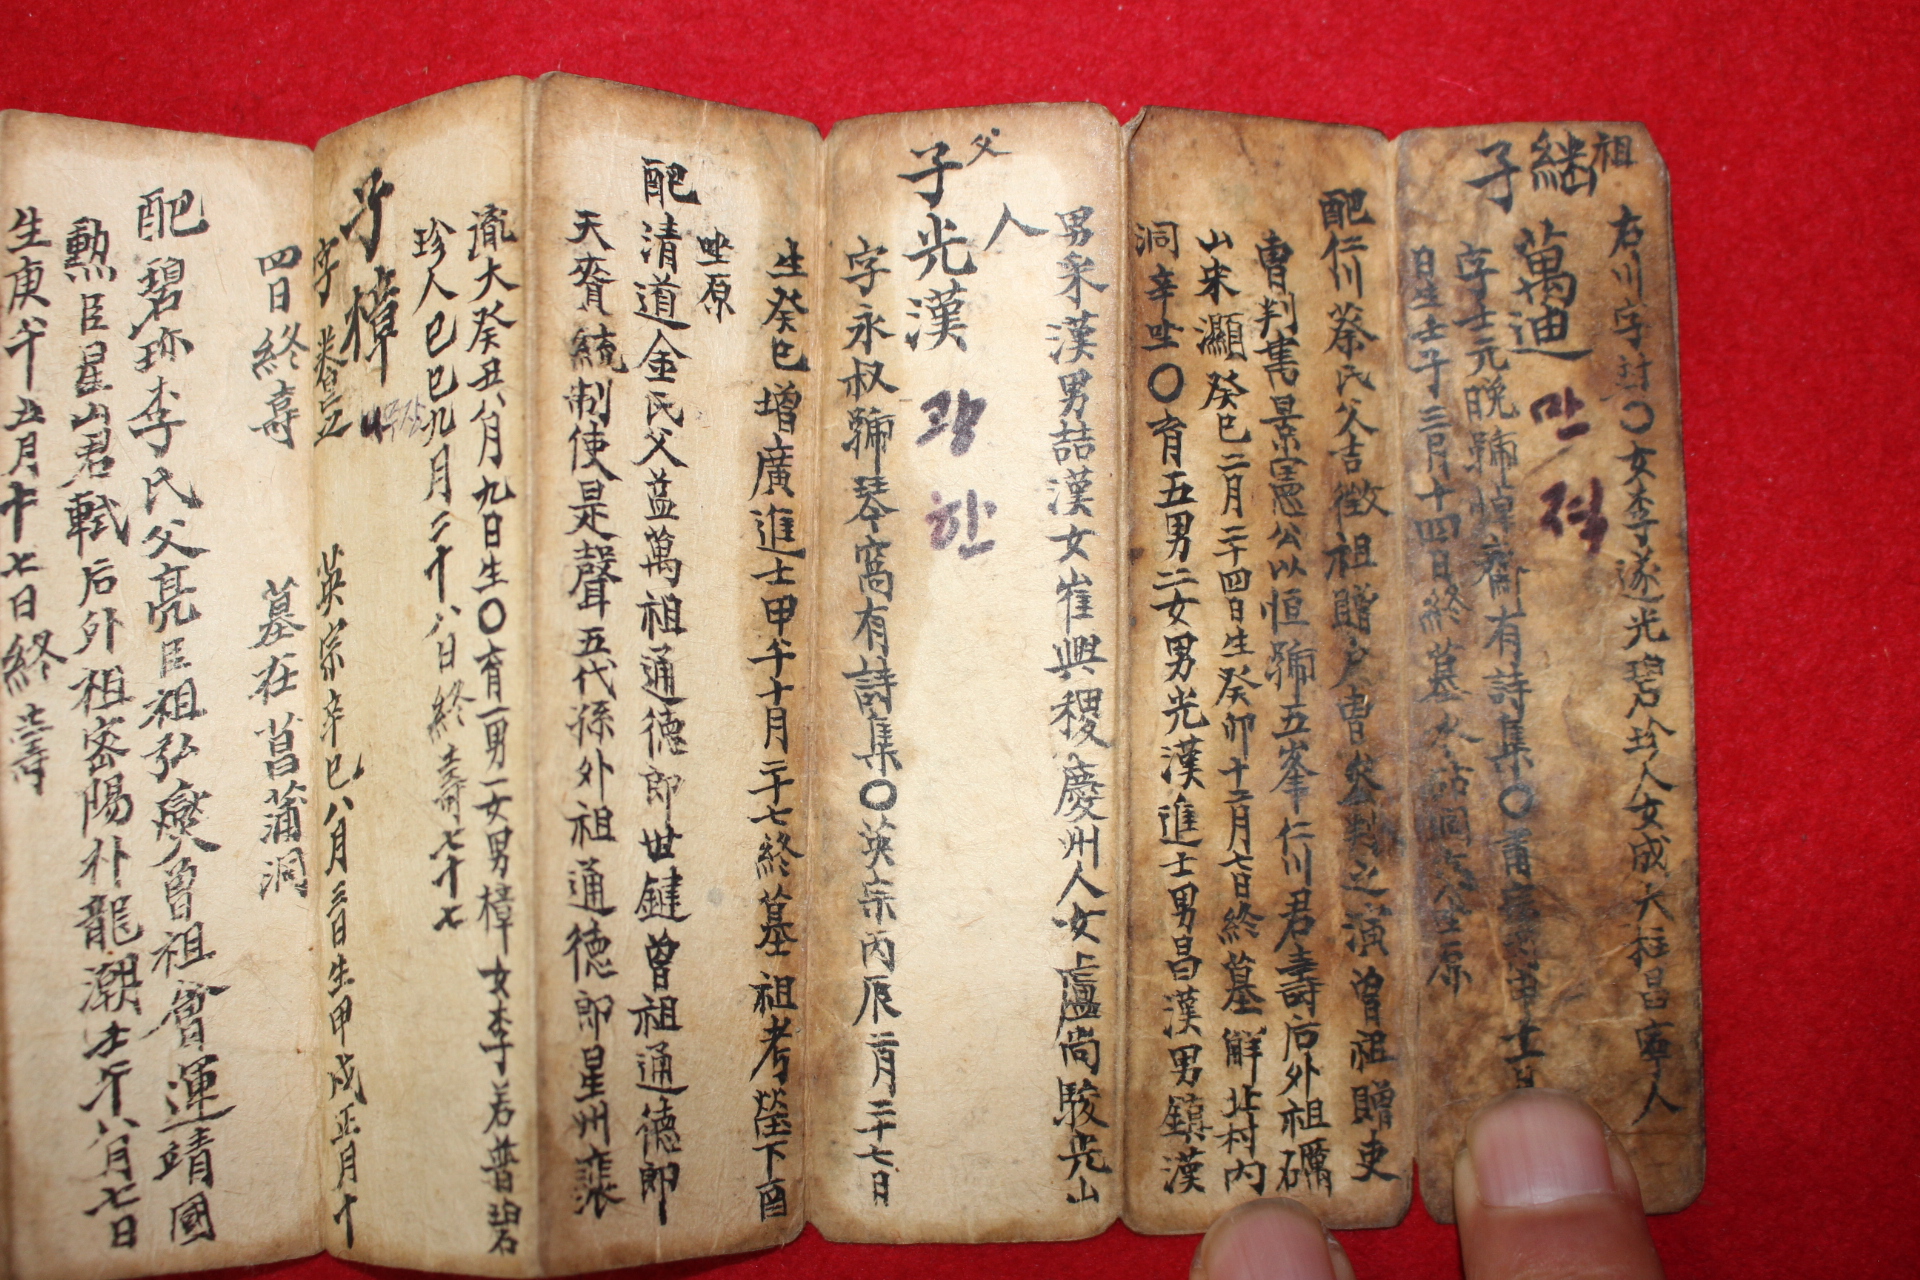 祖
右川字封〇女李遂光碧珍人女成大柱昌寧人
繼子萬迪 만적
字士元晚號悼齋有詩集〇肅宗
日生壬子三月十四日終墓
配仁川蔡氏父吉徵祖贈戶曹參判之演曾祖贈吏
曹判書景憲公以恒號五峯仁川君壽后外祖礪
山宋灝癸巳二月二十四日生癸卯十二月七日終墓解北村內
洞辛坐〇育五男二女男光漢進士男昌漢男鎮漢
男采漢男喆漢女崔興稷慶州人女盧尚駿光山
人
父
子光漢 광한
字永叔號琴窩有詩集〇英宗丙辰二月二十七日
生癸巳增廣進士甲午十月二十七終墓祖考塋下酉
坐原
配清道金氏父益萬祖通德郎世鍵曾祖通德郎
天賚統制使是聲五代孫外祖通德郎星州裵
胤大癸丑八月九日生〇育一男一女男樟女李若普碧
珍人己巳九月二十八日終壽七十七
子樟
字 英宗辛巳八月三日生甲戌正月十
四日終壽 墓在菖蒲洞
配碧珍李氏父亮臣祖弘燮曾祖 運靖國
勳臣星山君軾后外祖密陽朴龍潮壬午八月七日
生庚午五月十七日終壽